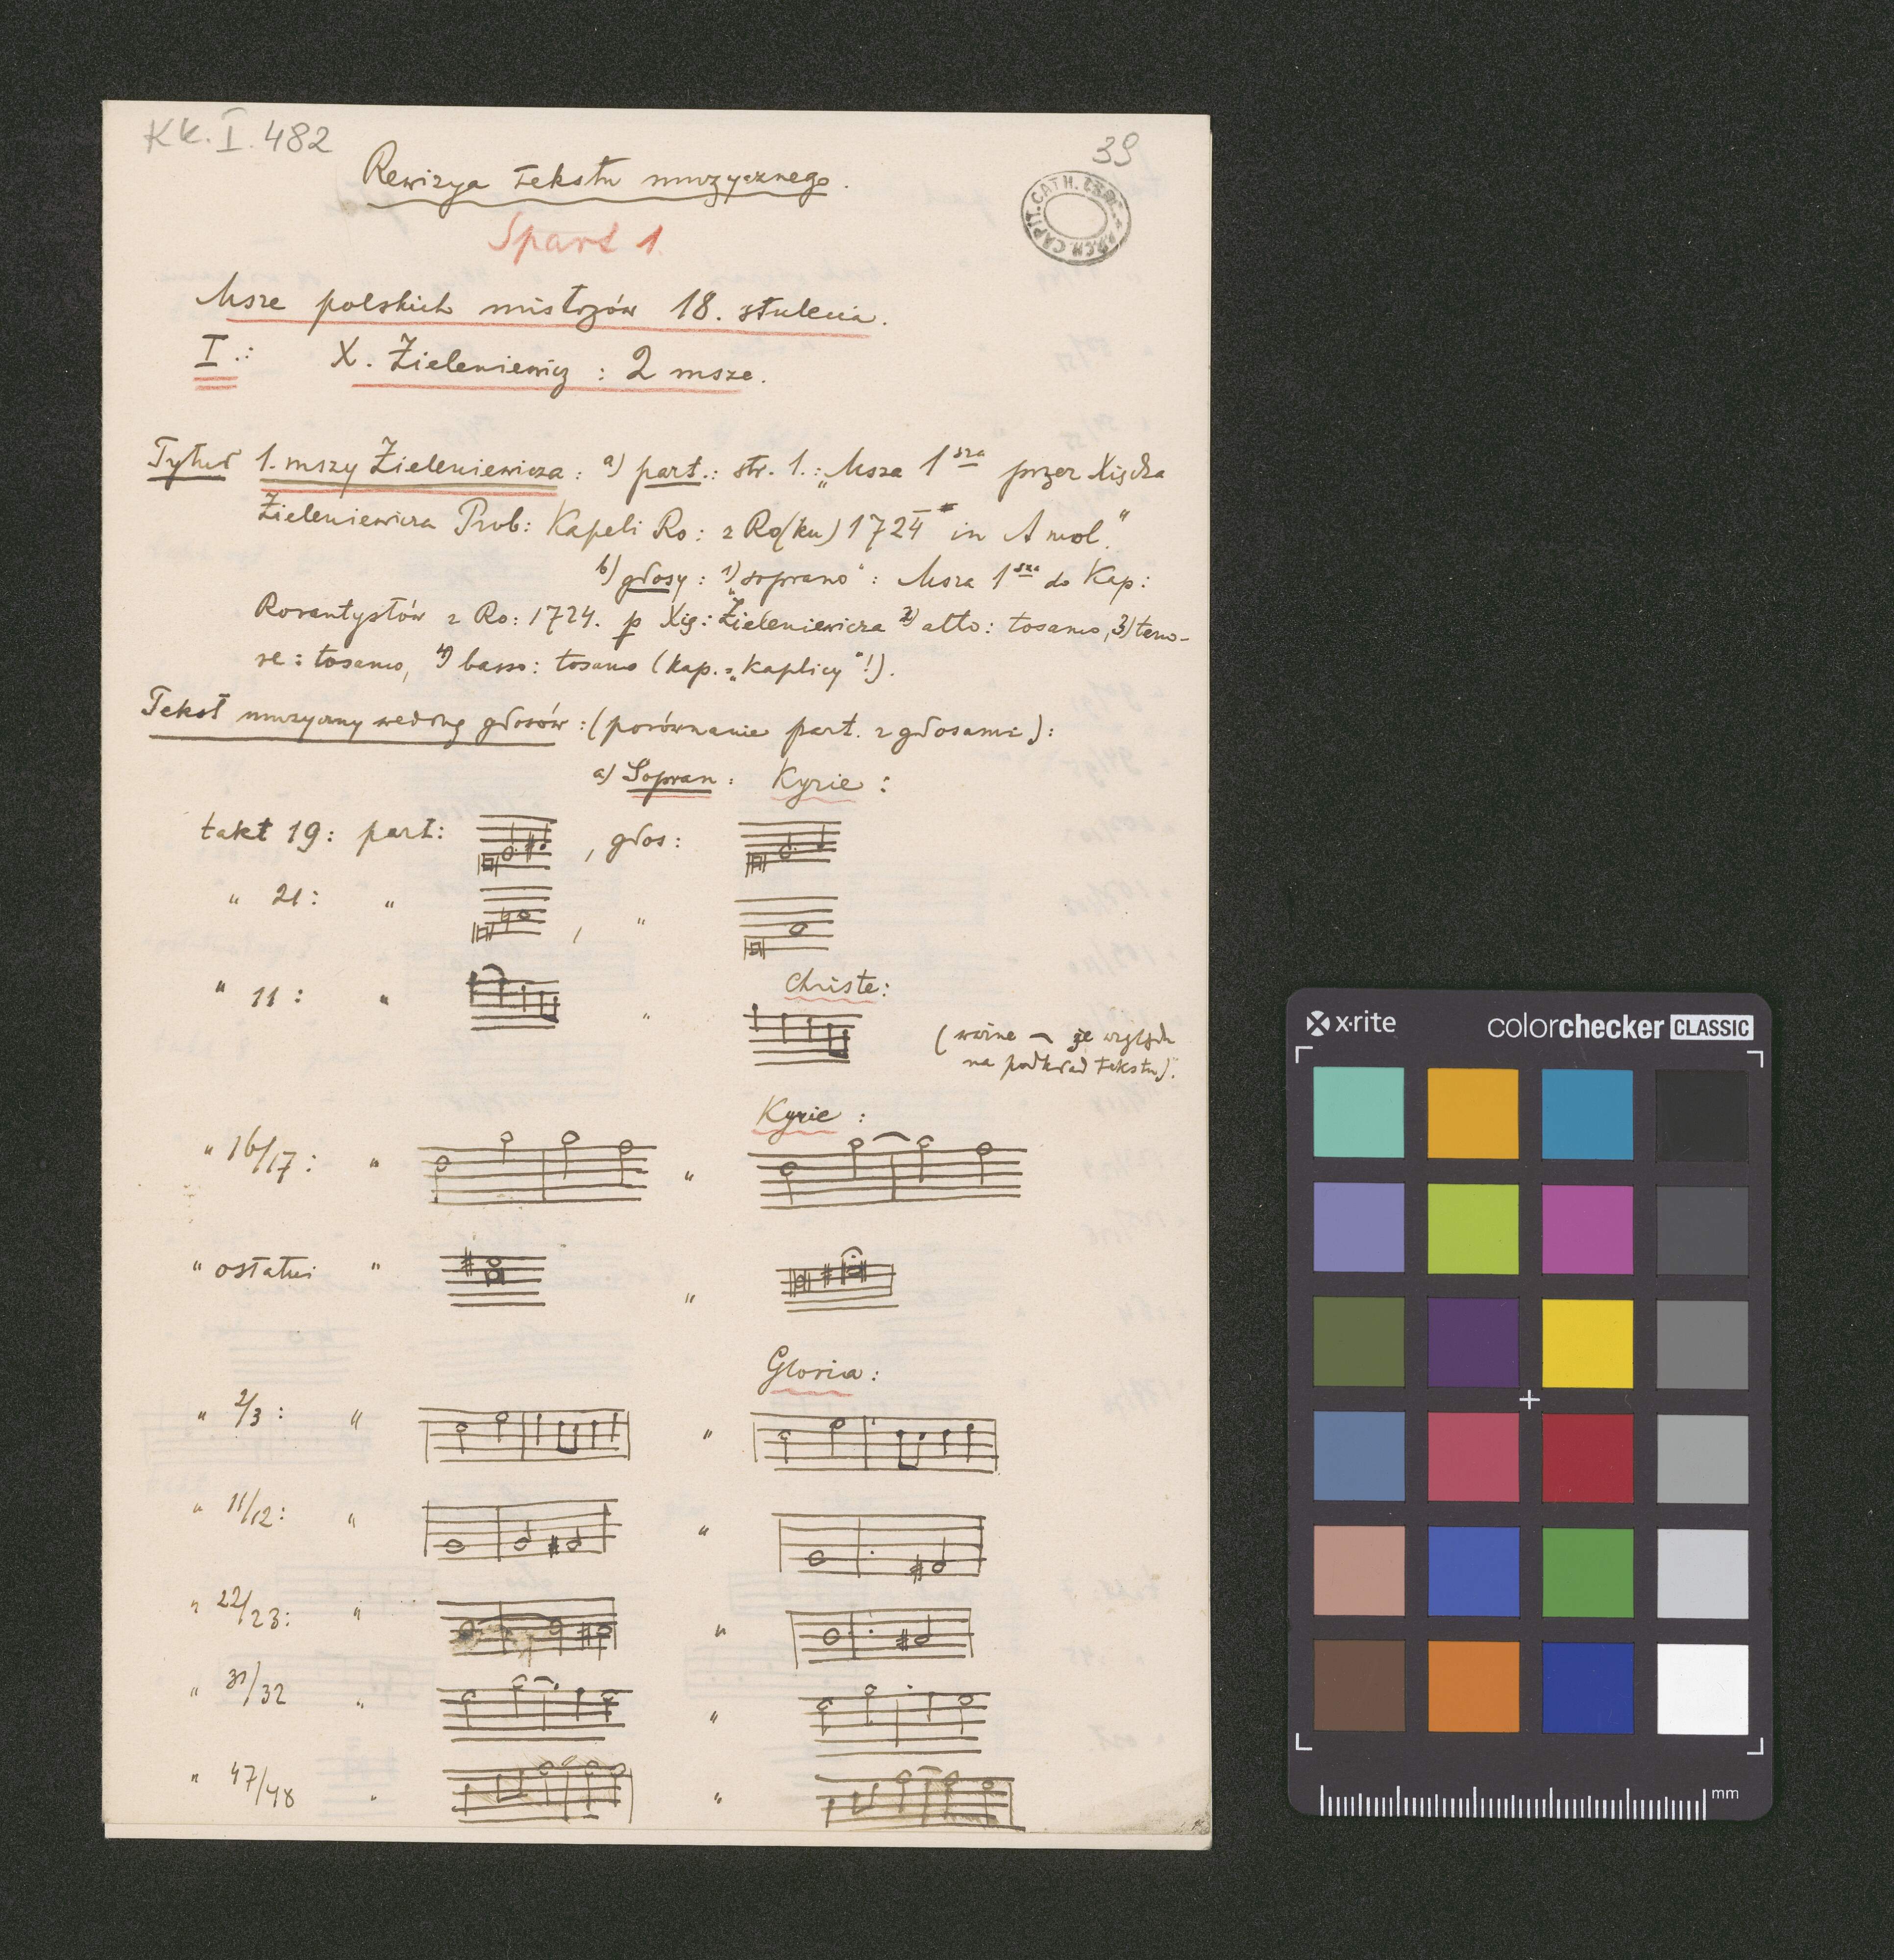 Kk. I. 482
39
Rewizya tekstu muzycznego.
CAPIT. CATH. CRAC. ARCH.
Spart 1.
Msze polskich mistrzów 18. stulecia.
I.: X. Zieleniewicz : 2 msze.
Tytuł 1. mszy Zieleniewicza : a) part.: str. 1.: „Msza 1sza przez Xiędza
Zieleniewicza Prob: Kapeli Ro: z Ro(ku) 1724 in A mol."
b) głosy : 1) „soprano" : Msza 1sza do Kap:
Rorantystów z Ro: 1724. p Xię: Zieleniewicza 2) alto: tosamo, 3) teno-
re : tosamo, 4) basso: tosamo (kap. = „Kaplicy"!).
Tekst muzyczny według głosów : (porównanie part. z głosami) :
a) Sopran : Kyrie :
takt 19 : part: , głos :
" 21 : " , "
Christe :
" 11 : " "
(ważne ⁀ ze względu
na podkład tekstu).
Kyrie :
" 16/17 : " "
" ostatni " "
Gloria :
" 2/3 : " "
" 11/12 : " "
" 22/23 : " "
" 31/32 " "
" 47/48 " "
x·rite
colorchecker CLASSIC
mm